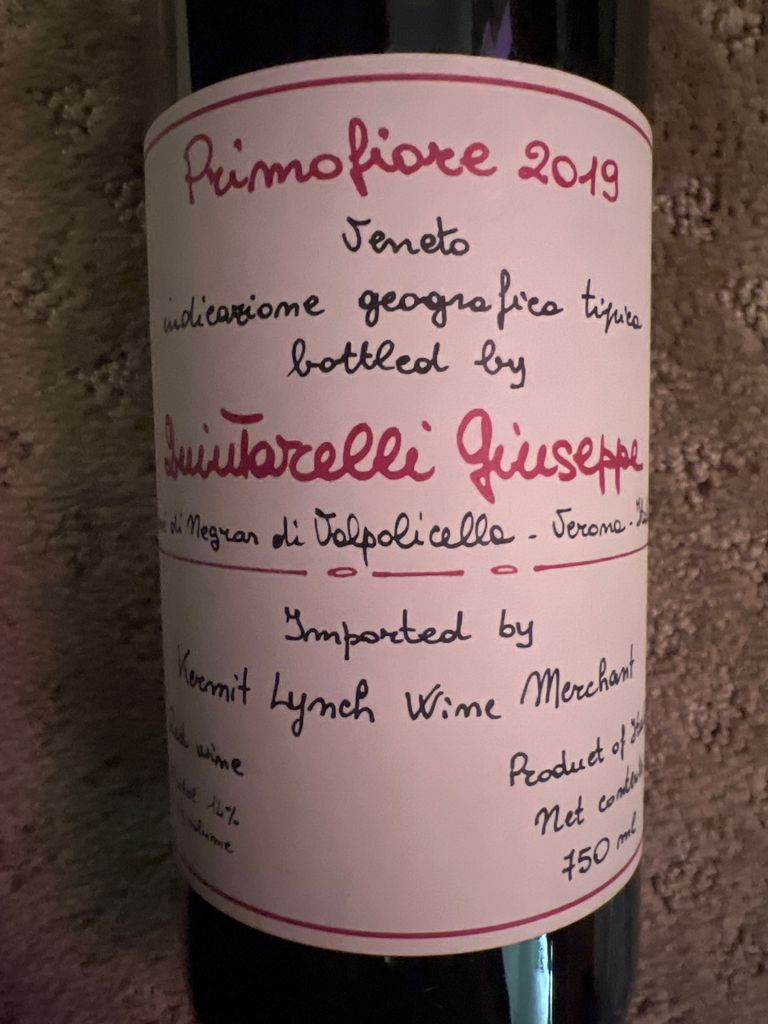 Primofiore 2019
Veneto
indicazione geografica tipica
bottled by
Quintarelli Giuseppe
di Negrar di Valpolicella - Verona -
Imported by
Kermit Lynch Wine Merchant
Red wine
14%
volume
Product of
Net
750 ml